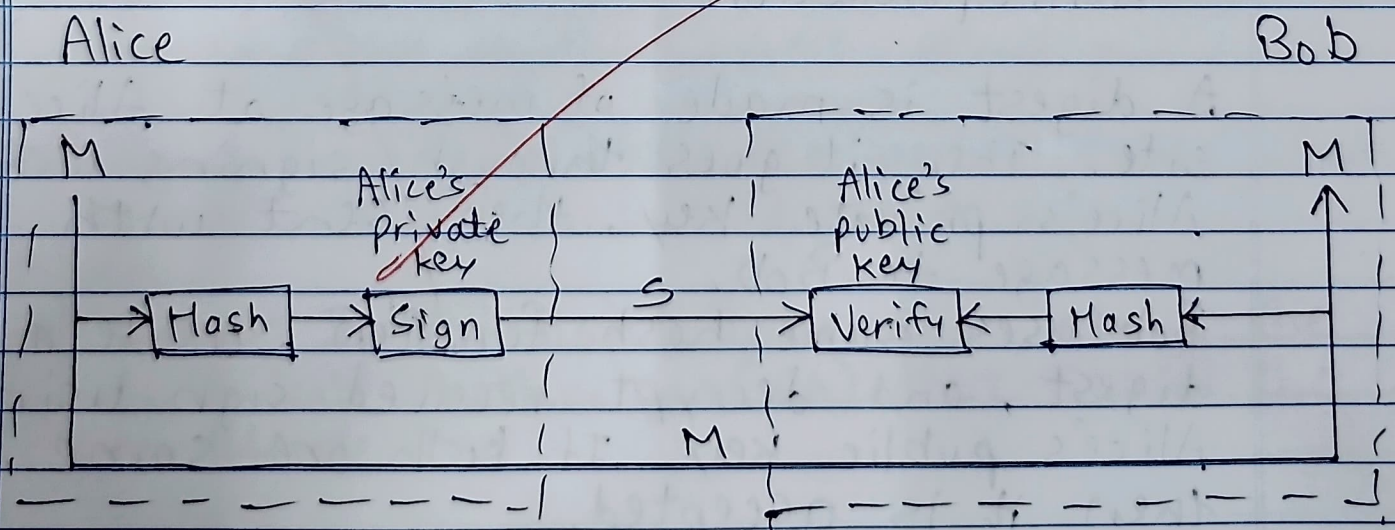 Alice
Bob
M
M
Alice's
private
key
Alice's
public
key
Hash
Sign
S
Verify
Hash
M